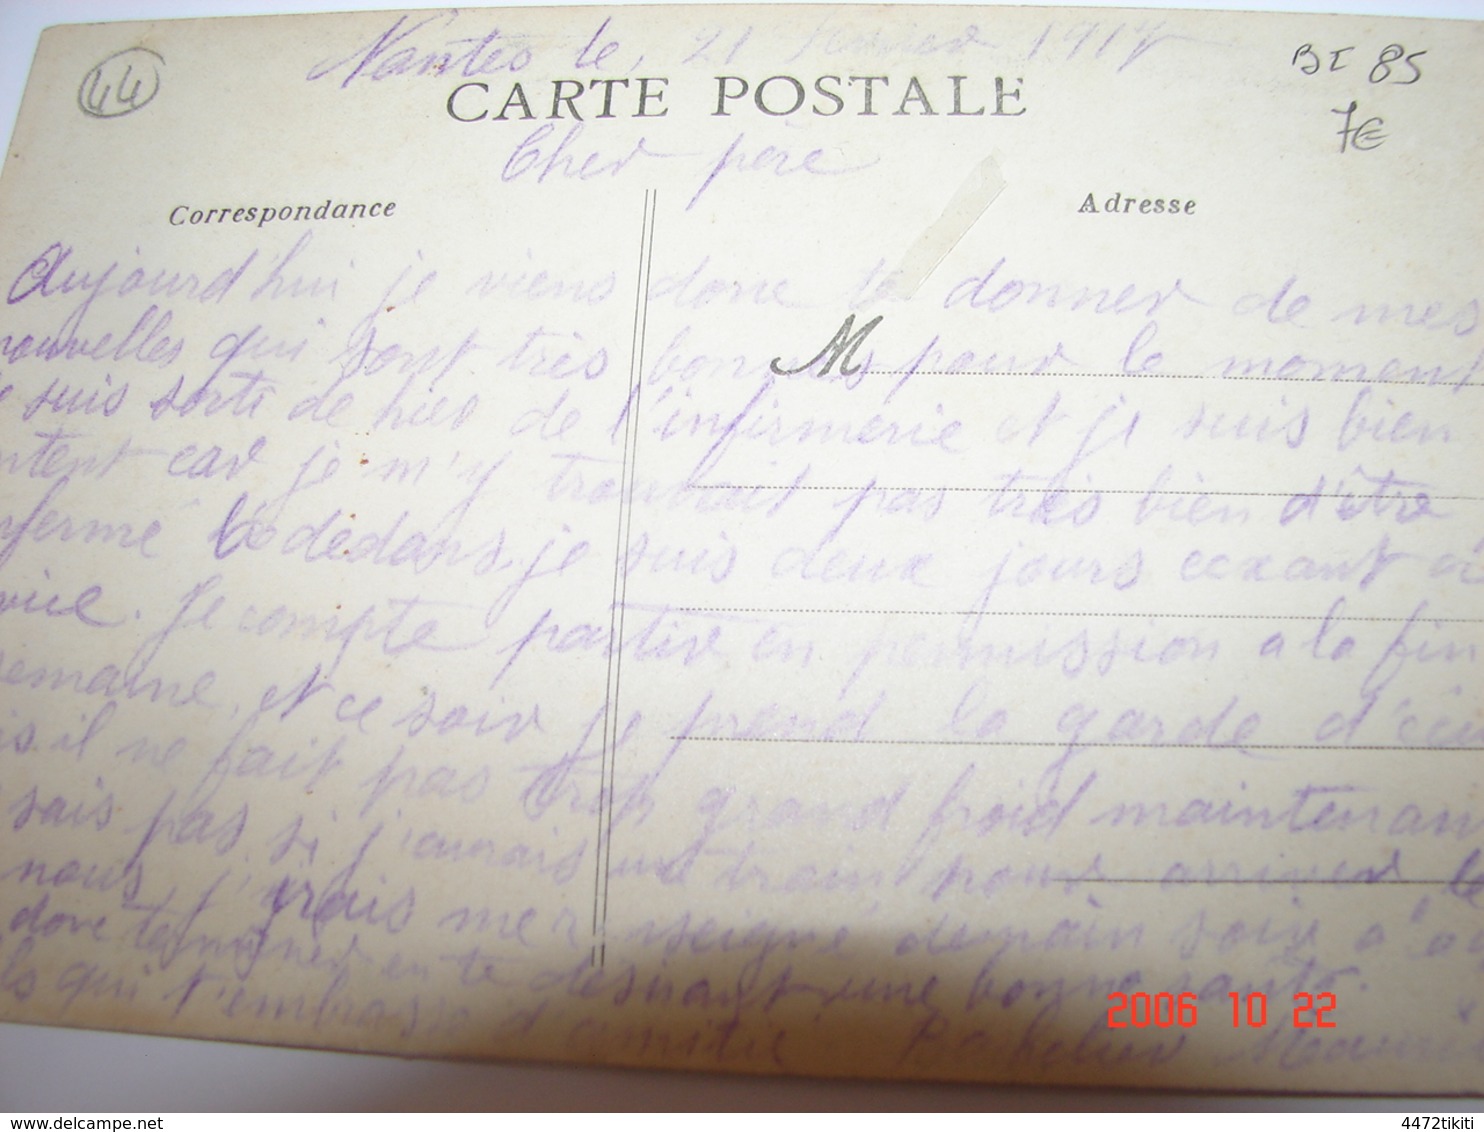 44
Nantes le, 21 1917
BI 85
7€
CARTE POSTALE
Cher père
Correspondance
Adresse
Aujourd'hui je viens donc te donner de mes
nouvelles qui sont très bonnes pour le moment
M
suis sorti de hier de l'infirmerie et je suis bien
car je m'y trouvait pas très bien d'être
fermé là dedans. je suis deux jours exant
Je compte partire en permission a la fin
semaine, et ce soir je prend la garde
il ne fait pas trop grand froid maintenan
sais pas si j'aurais un train pour arriver le
nous, j'irais me renseigné demain soir
donc terminer en te désirant une bonne santé.
qui t'embrasse d'amitié
2006 10 22
delcampe.net
4472tikiti